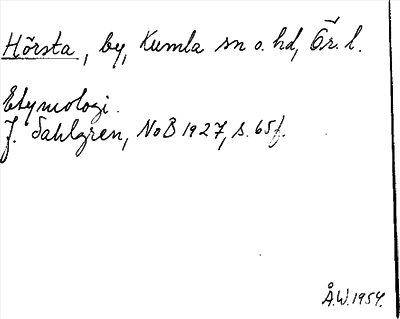 Hörsta, by, Kumla sn o. hd, Ör. l.
Etymologi.
J. Sahlgren, NoB 1927, s. 65 f.
Å.W. 1954.